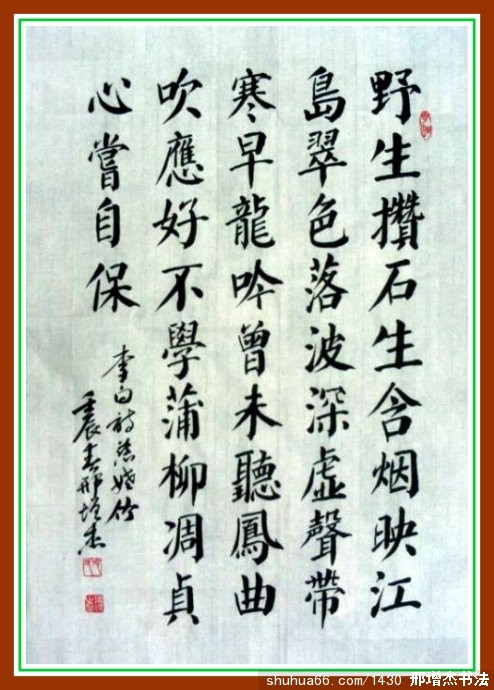 野生攢石生含烟映江
島翠色落波深虛聲帶
寒早龍吟曾未聽鳳曲
吹應好不學蒲柳凋貞
心嘗自保
李白詩慈姥竹
壬辰春邢增杰
shuhua66.com/1430 邢增杰书法